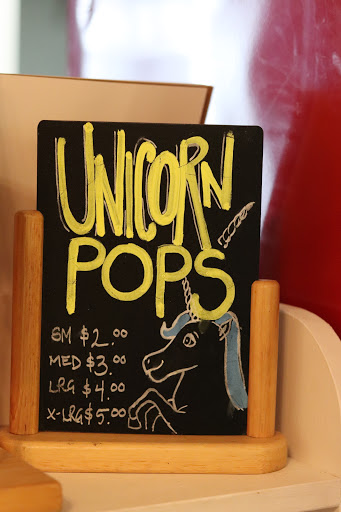 UNICORN
POPS
SM $2.00
MED $3.00
LRG $4.00
X-LRG $5.00